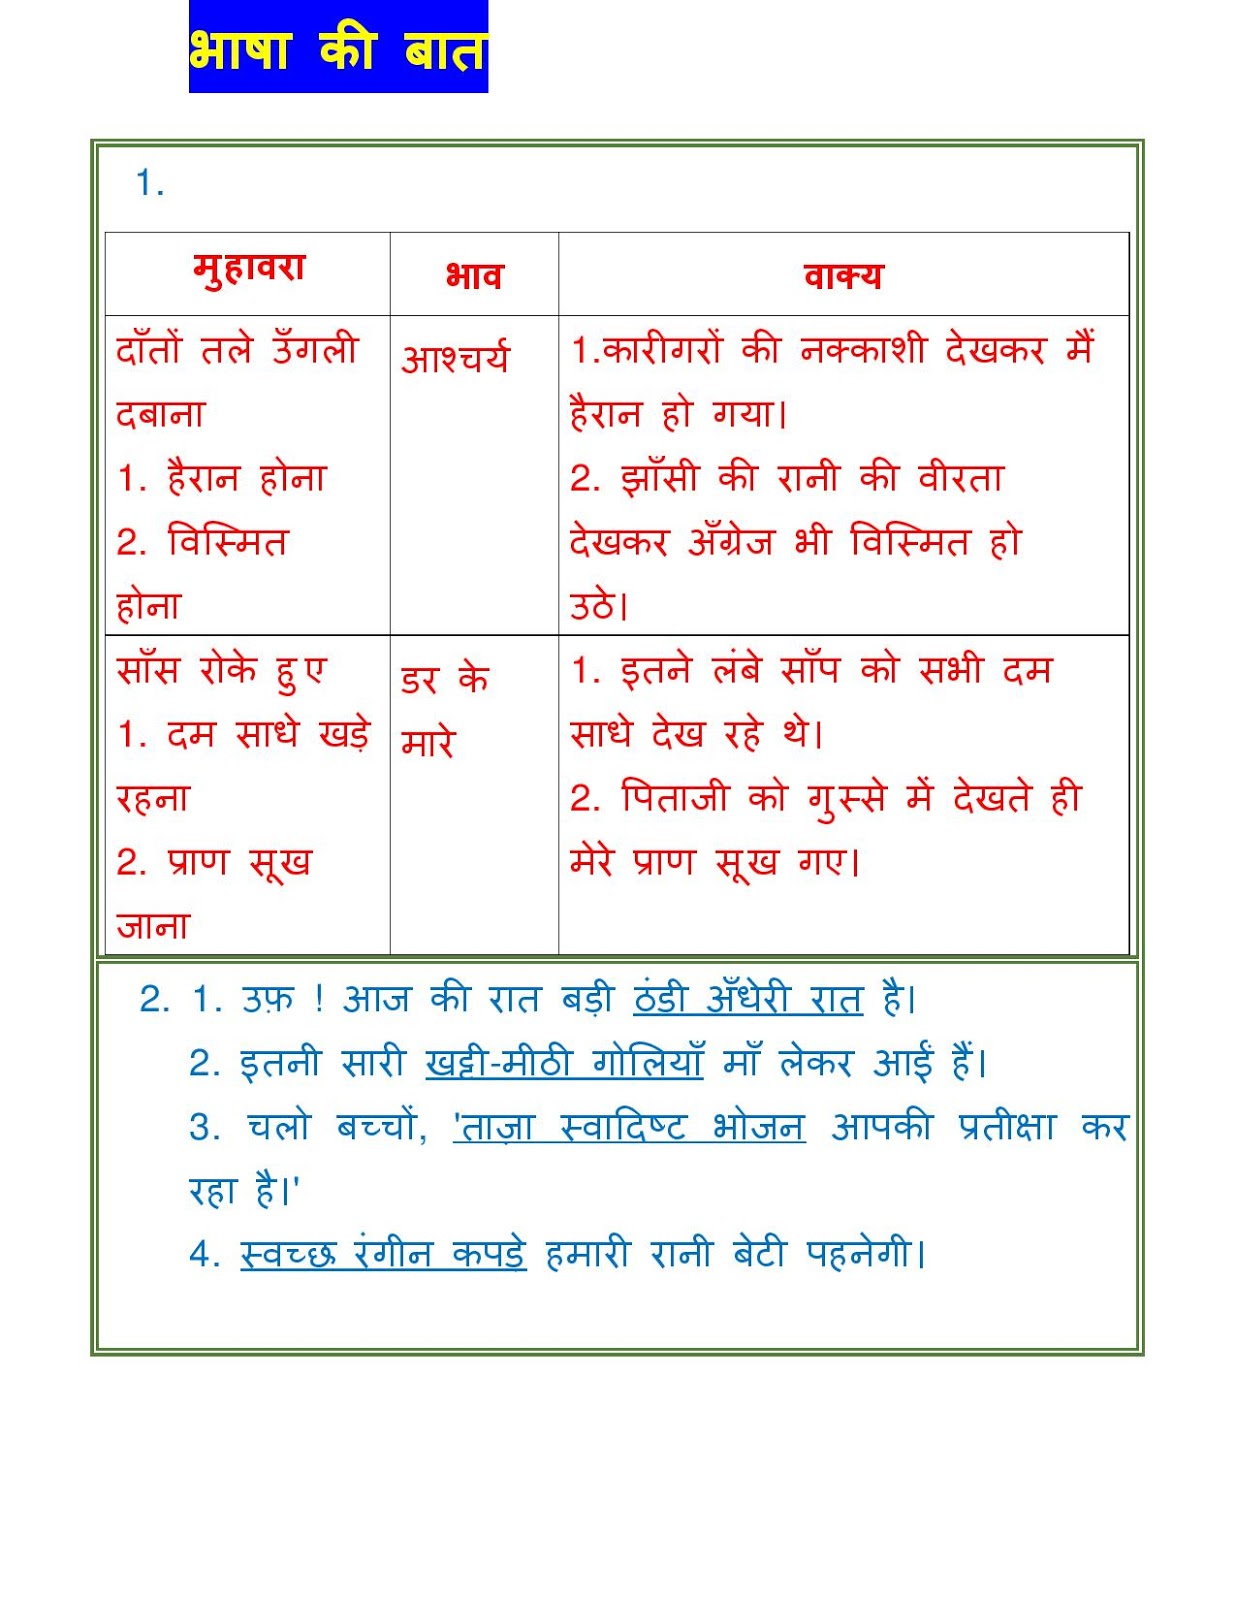 भाषा की बात
1.
मुहावरा भाव वाक्य
दाँतों तले उँगली
दबाना
1. हैरान होना
2. विस्मित
होना
आश्चर्य
1.कारीगरों की नक्काशी देखकर मैं
हैरान हो गया।
2. झाँसी की रानी की वीरता
देखकर अँग्रेज भी विस्मित हो
उठे।
साँस रोके हुए
1. दम साधे खड़े
रहना
2. प्राण सूख
जाना
डर के
मारे
1. इतने लंबे साँप को सभी दम
साधे देख रहे थे।
2. पिताजी को गुस्से में देखते ही
मेरे प्राण सूख गए।
2. 1. उफ़ ! आज की रात बड़ी ठंडी अँधेरी रात है।
2. इतनी सारी खट्टी-मीठी गोलियाँ माँ लेकर आईं हैं।
3. चलो बच्चों, 'ताज़ा स्वादिष्ट भोजन आपकी प्रतीक्षा कर
रहा है।'
4. स्वच्छ रंगीन कपड़े हमारी रानी बेटी पहनेगी।